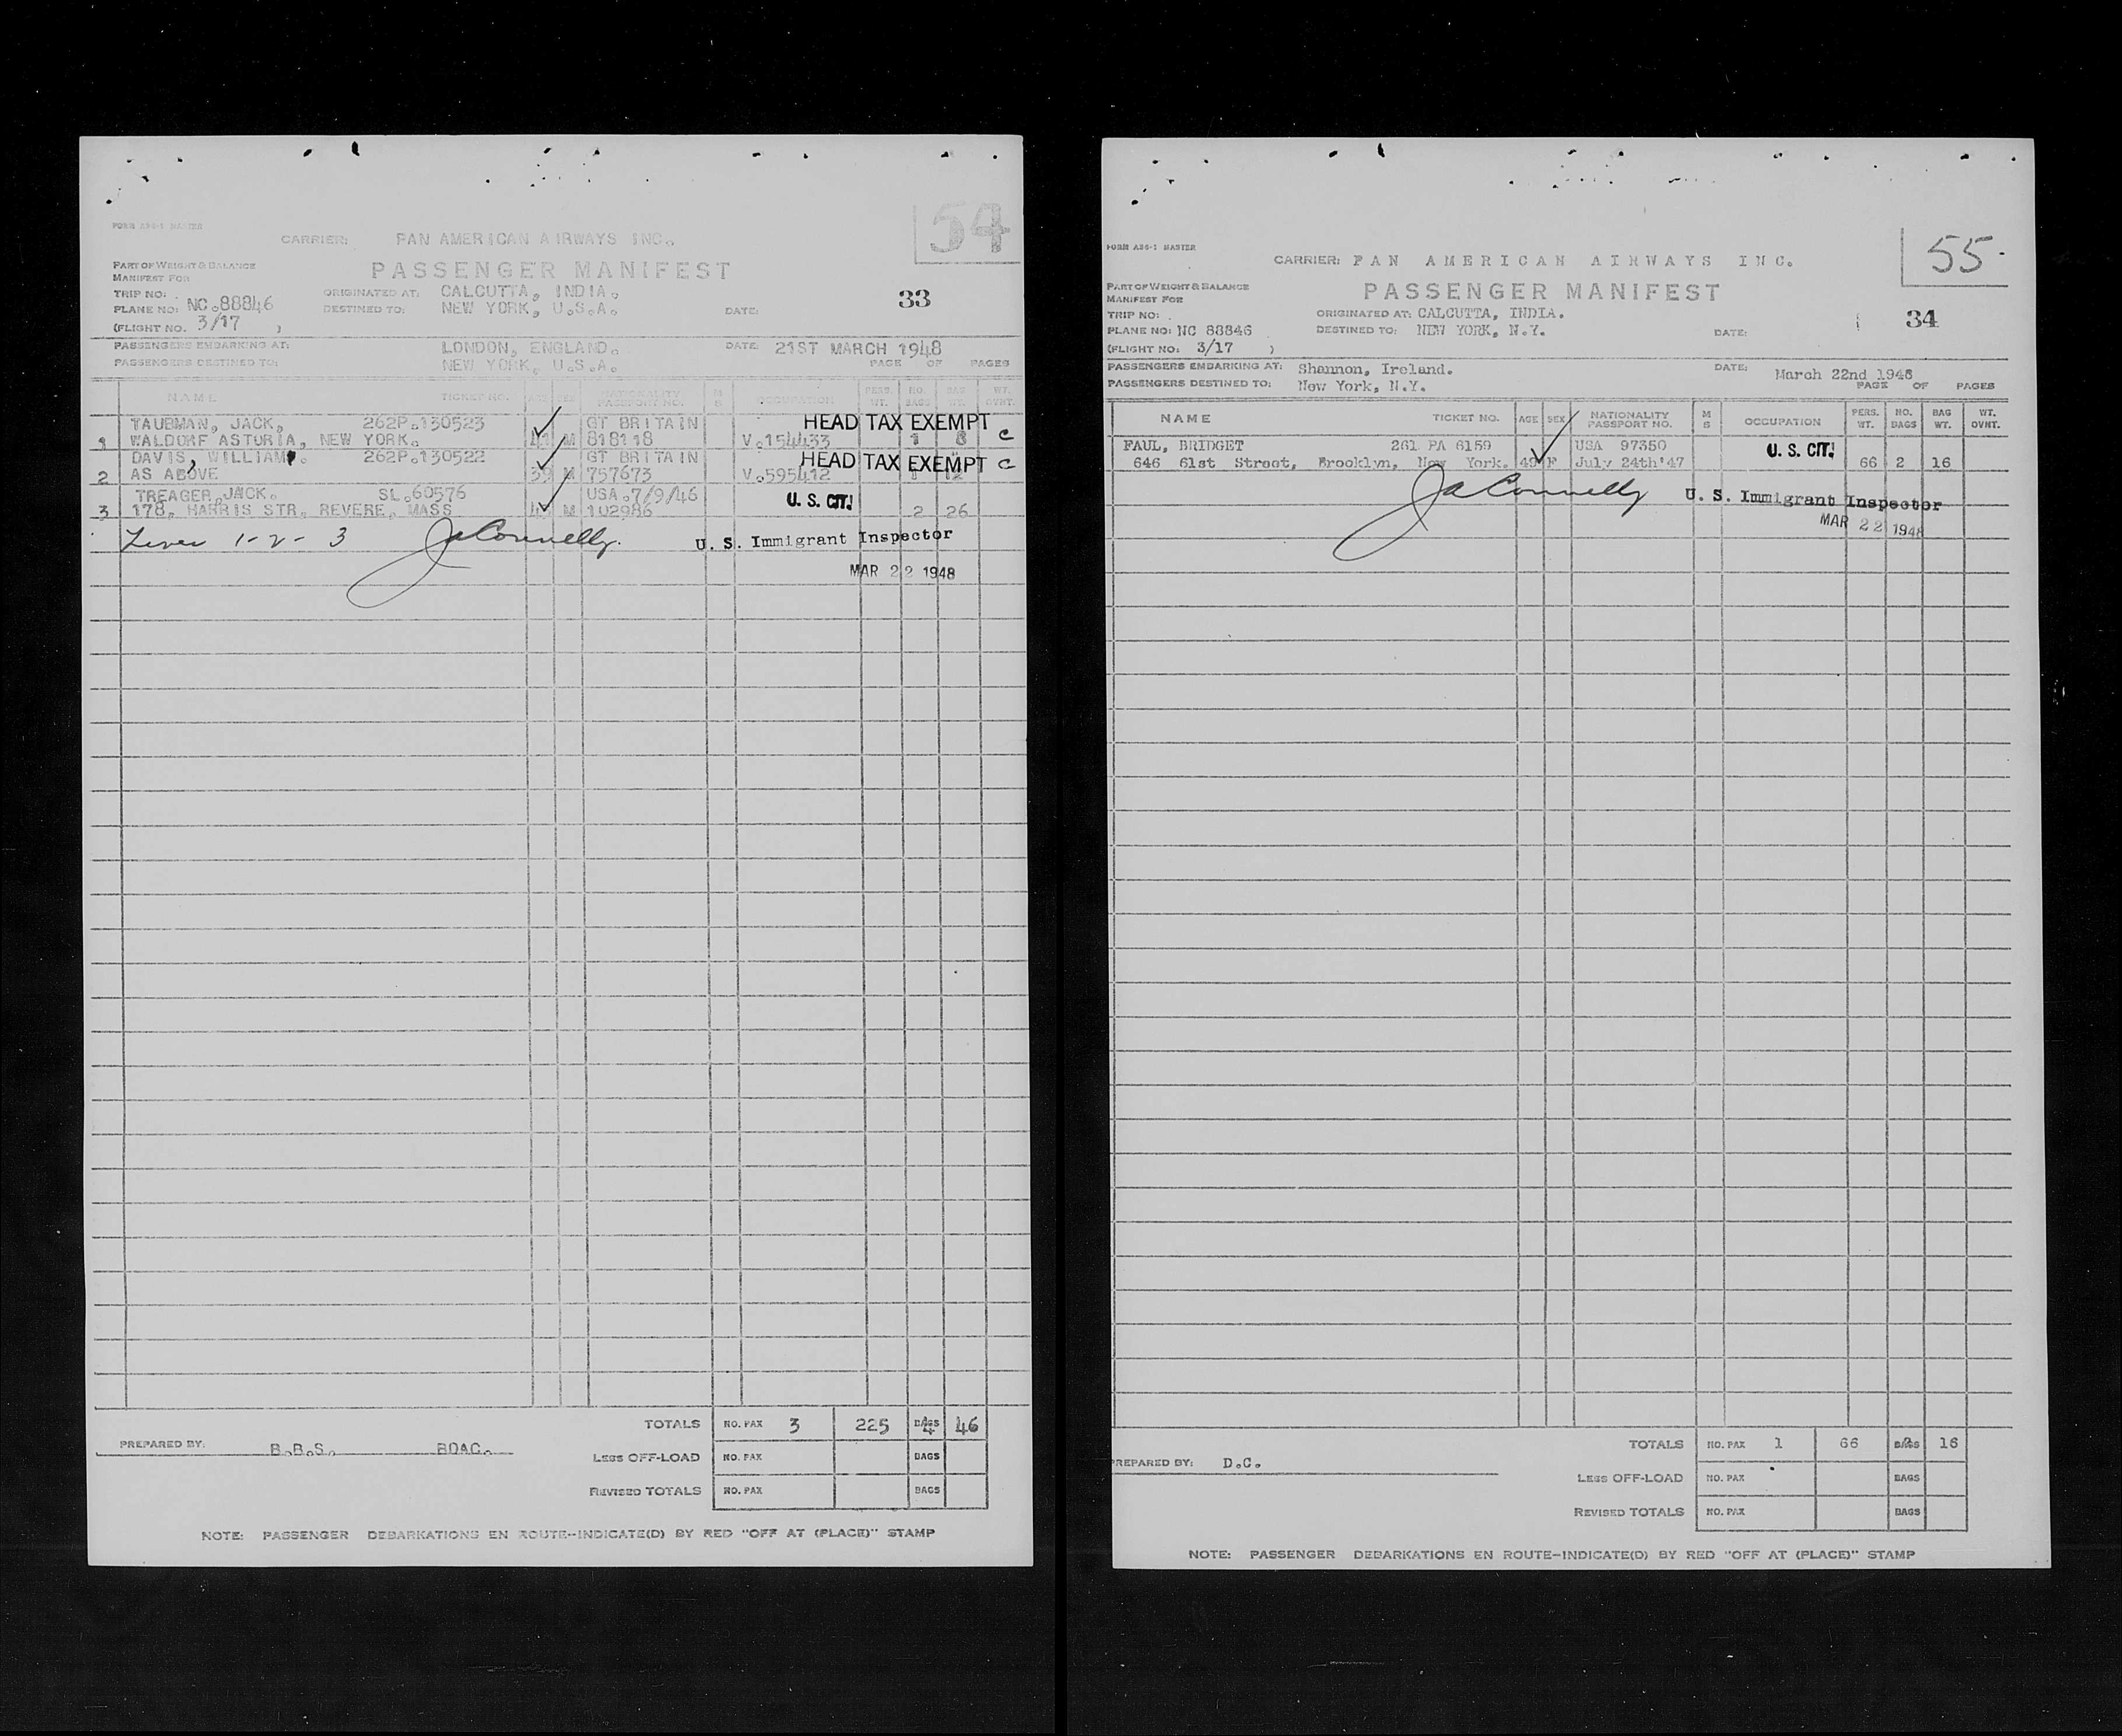 54
FORM AS6-1 MASTER
CARRIER: PAN AMERICAN AIRWAYS INC.
PART OF WEIGHT & BALANCE
MANIFEST FOR
PASSENGER MANIFEST
TRIP NO:
PLANE NO: NC.88846
(FLIGHT NO. 3/17 )
ORIGINATED AT: CALCUTTA, INDIA.
DESTINED TO: NEW YORK, U.S.A.
DATE:
33
PASSENGERS EMBARKING AT: LONDON, ENGLAND. DATE: 21ST MARCH 1948
PASSENGERS DESTINED TO: NEW YORK, U.S.A. PAGE OF PAGES
NAME TICKET NO. AGE SEX NATIONALITY PASSPORT NO. M S OCCUPATION PERS. WT. NO. BAGS BAG WT. WT. OVNT.
TAUBMAN, JACK, 262P.130523 GT BRITAIN HEAD TAX EXEMPT C
1 WALDORF ASTORIA, NEW YORK. 41 M 818118 V.154433 1 8
DAVIS, WILLIAM. 262P.130522 GT BRITAIN HEAD TAX EXEMPT C
2 AS ABOVE 39 M 757673 V.595412 1 12
TREAGER,JACK. SL.60576 USA.7/9/46 U. S. CIT.
3 178, HARRIS STR, REVERE, MASS M 102986 2 26
1-2-3 JaConnelly. U. S. Immigrant Inspector
MAR 22 1948
TOTALS NO. PAX 3 225 BAGS 4 46
PREPARED BY: B.B.S. BOAC.
LESS OFF-LOAD NO. PAX BAGS
REVISED TOTALS NO. PAX BAGS
NOTE: PASSENGER DEBARKATIONS EN ROUTE-INDICATE(D) BY RED "OFF AT (PLACE)" STAMP
55.
FORM AS6-1 MASTER
CARRIER: PAN AMERICAN AIRWAYS INC.
PART OF WEIGHT & BALANCE
MANIFEST FOR
PASSENGER MANIFEST
TRIP NO:
PLANE NO: NC 88846
(FLIGHT NO: 3/17 )
ORIGINATED AT: CALCUTTA, INDIA.
DESTINED TO: NEW YORK, N.Y.
DATE:
34
PASSENGERS EMBARKING AT: Shannon, Ireland. DATE: March 22nd 1948
PASSENGERS DESTINED TO: New York, N.Y. PAGE OF PAGES
NAME TICKET NO. AGE SEX NATIONALITY PASSPORT NO. M S OCCUPATION PERS. WT. NO. BAGS BAG WT. WT. OVNT.
FAUL, BRIDGET 261 PA 6159 USA 97350 U. S. CIT.
646 61st Street, Brooklyn, New York. F July 24th'47 66 2 16
JaConnelly U. S. Immigrant Inspector
MAR 22 1948
TOTALS NO. PAX 1 66 BAGS 2 16
PREPARED BY: D.C.
LESS OFF-LOAD NO. PAX BAGS
REVISED TOTALS NO. PAX BAGS
NOTE: PASSENGER DEBARKATIONS EN ROUTE-INDICATE(D) BY RED "OFF AT (PLACE)" STAMP